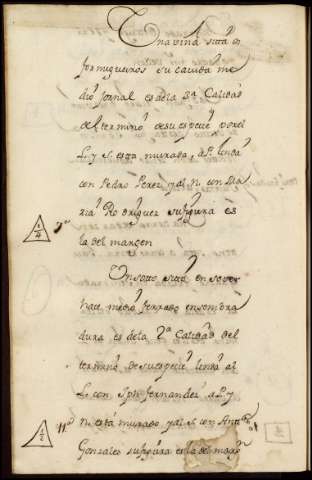 Una viña sita en
formigueiros su cavida me
dio Jornal es dela 3ª Calidad
del termino desu especie porel
L. y S. esta murada, a P. linda
con Pedro Perez y al N. con Ma
ria Rodriguez su figura es
la del margen
Un soto sito en
hace medio ferrado en sembra
dura es dela 2ª Calidad del
termino desu especie linda al
L. con Jph fernandez a P. y
N. está murado y al S. con Antº
Gonzales su figura es la del marxn